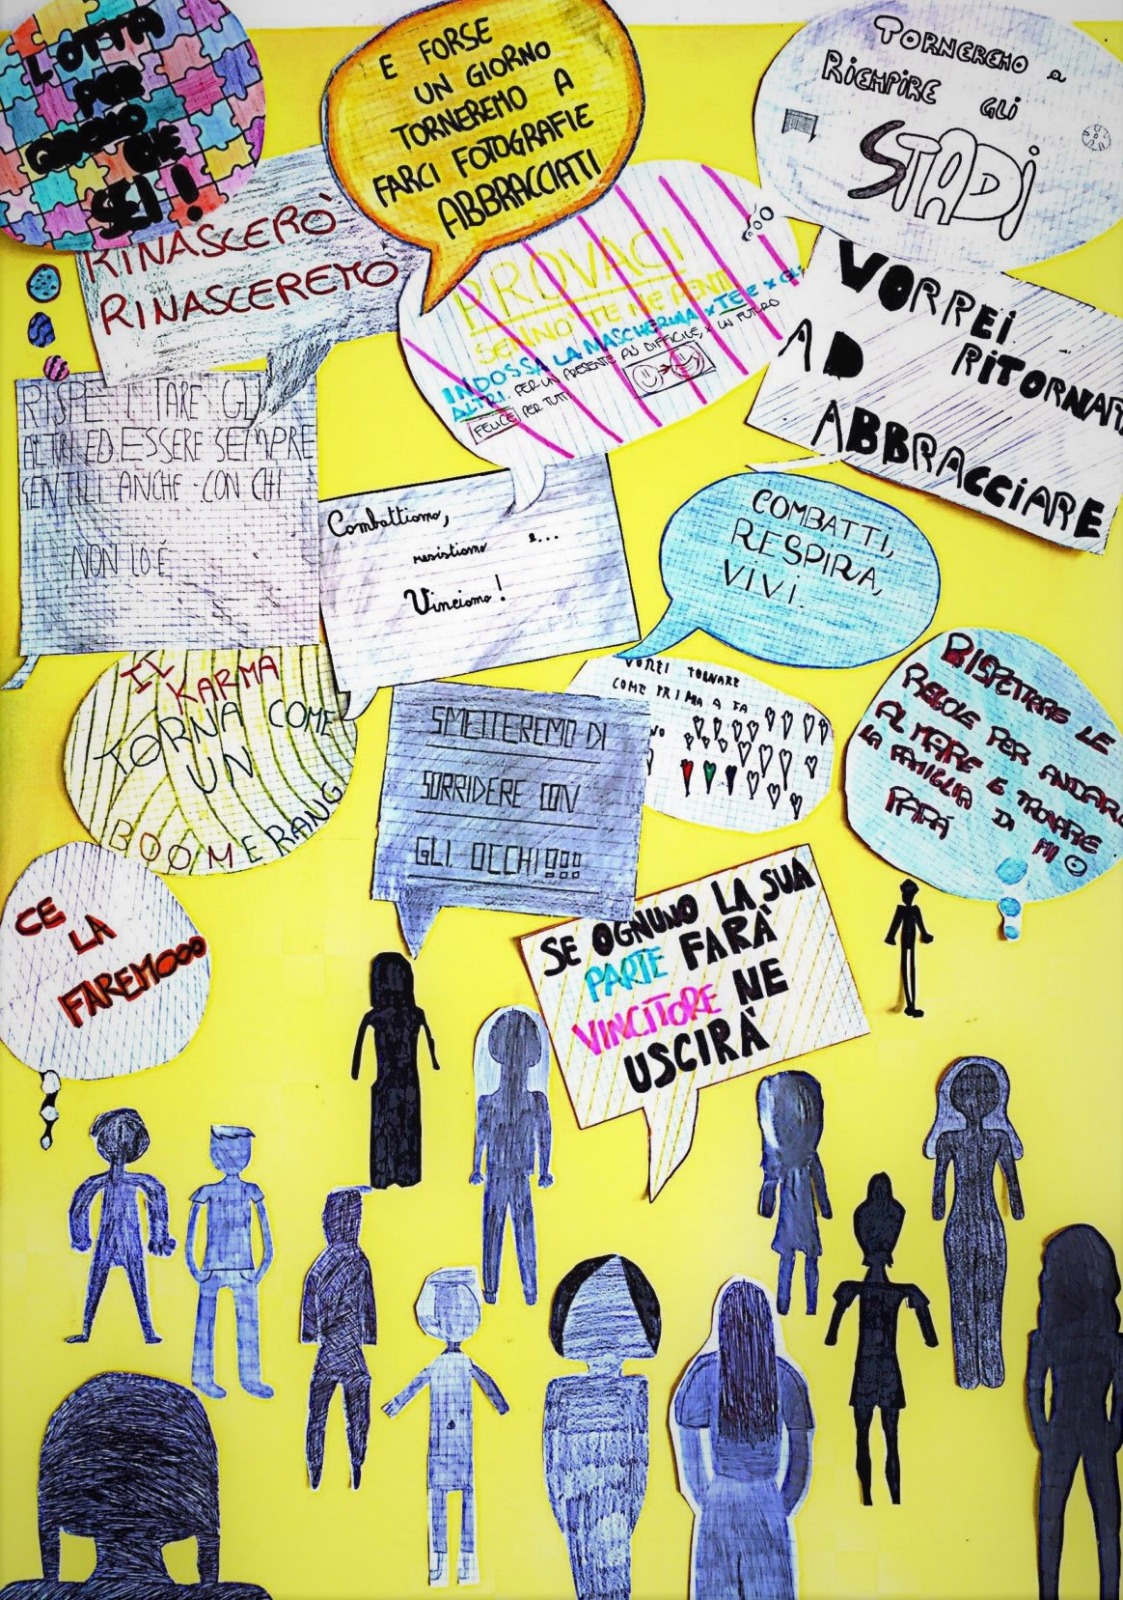 LOTTA
PER
QUELLO
CHE
SEI!
E FORSE
UN GIORNO
TORNEREMO A
FARCI FOTOGRAFIE
ABBRACCIATI
TORNEREMO a
RIEMPIRE GLI
STADI
RINASCERÒ
RINASCERETO
PROVACI
SENNÒ TE NE PENTI
INDOSSA LA MASCHERINA X TE E X GLI
ALTRI. PER UN PRESENTE PIÙ DIFFICILE, X UN FUTURO
FELICE PER TUTTI
VORREI
AD RITORNARE
ABBRACCIARE
RISPETTARE GLI
ALTRI ED ESSERE SEMPRE
GENTILI ANCHE CON CHI
NON LO É
Combattiamo,
resistiamo e...
Vinciamo!
COMBATTI,
RESPIRA,
VIVI.
IL
KARMA
TORNA COME
UN
BOOMERANG
SMETTEREMO DI
SORRIDERE CON
GLI OCCHI!!!
VORREI TORNARE
COME PRIMA A FA
RISPETTARE LE
REGOLE PER ANDARE
AL MARE E TROVARE
LA FAMIGLIA DI MIO
PAPÁ
CE
LA
FAREMOOO
SE OGNUNO LA SUA
PARTE FARÀ
VINCITORE NE
USCIRÀ